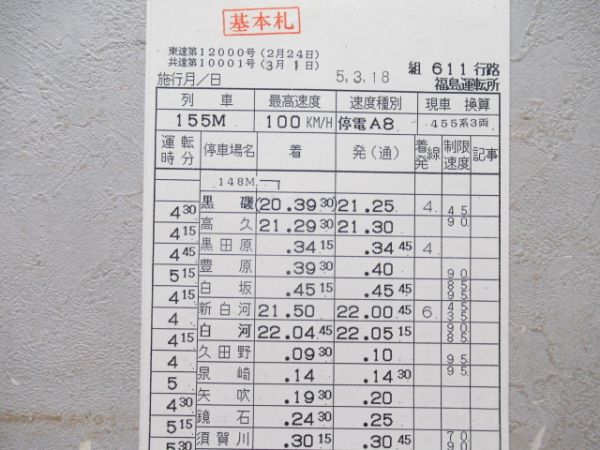 基本札
東達第12000号(2月24日)
共達第10001号(3月1日)
施行月/日 5.3.18 組 611行路
福島運転所
列 車 最高速度 速度種別 現車 換算
155M 100KM/H 停電A8 455系3両
運転時分 停車場名 着 発(通) 着発線 制限速度 記事
148M
黒磯 (20.39 30) 21.25 4 45
4 30
高久 21.29 30 21.30 90
4 15
黒田原 .34 15 .34 45 4
4 45
豊原 .39 30 .40 90
5 15
白坂 .45 15 .45 45 85 95
4 15
新白河 21.50 22.00 45 6 45 35
4
白河 22.04 45 22.05 15 90 85
4 15
久田野 .09 30 .10 95
4
泉崎 .14 .14 30 95
5
矢吹 .19 30 .20
4 30
鏡石 .24 30 .25
5 15
須賀川 .30 15 .30 45 70 90
5 30